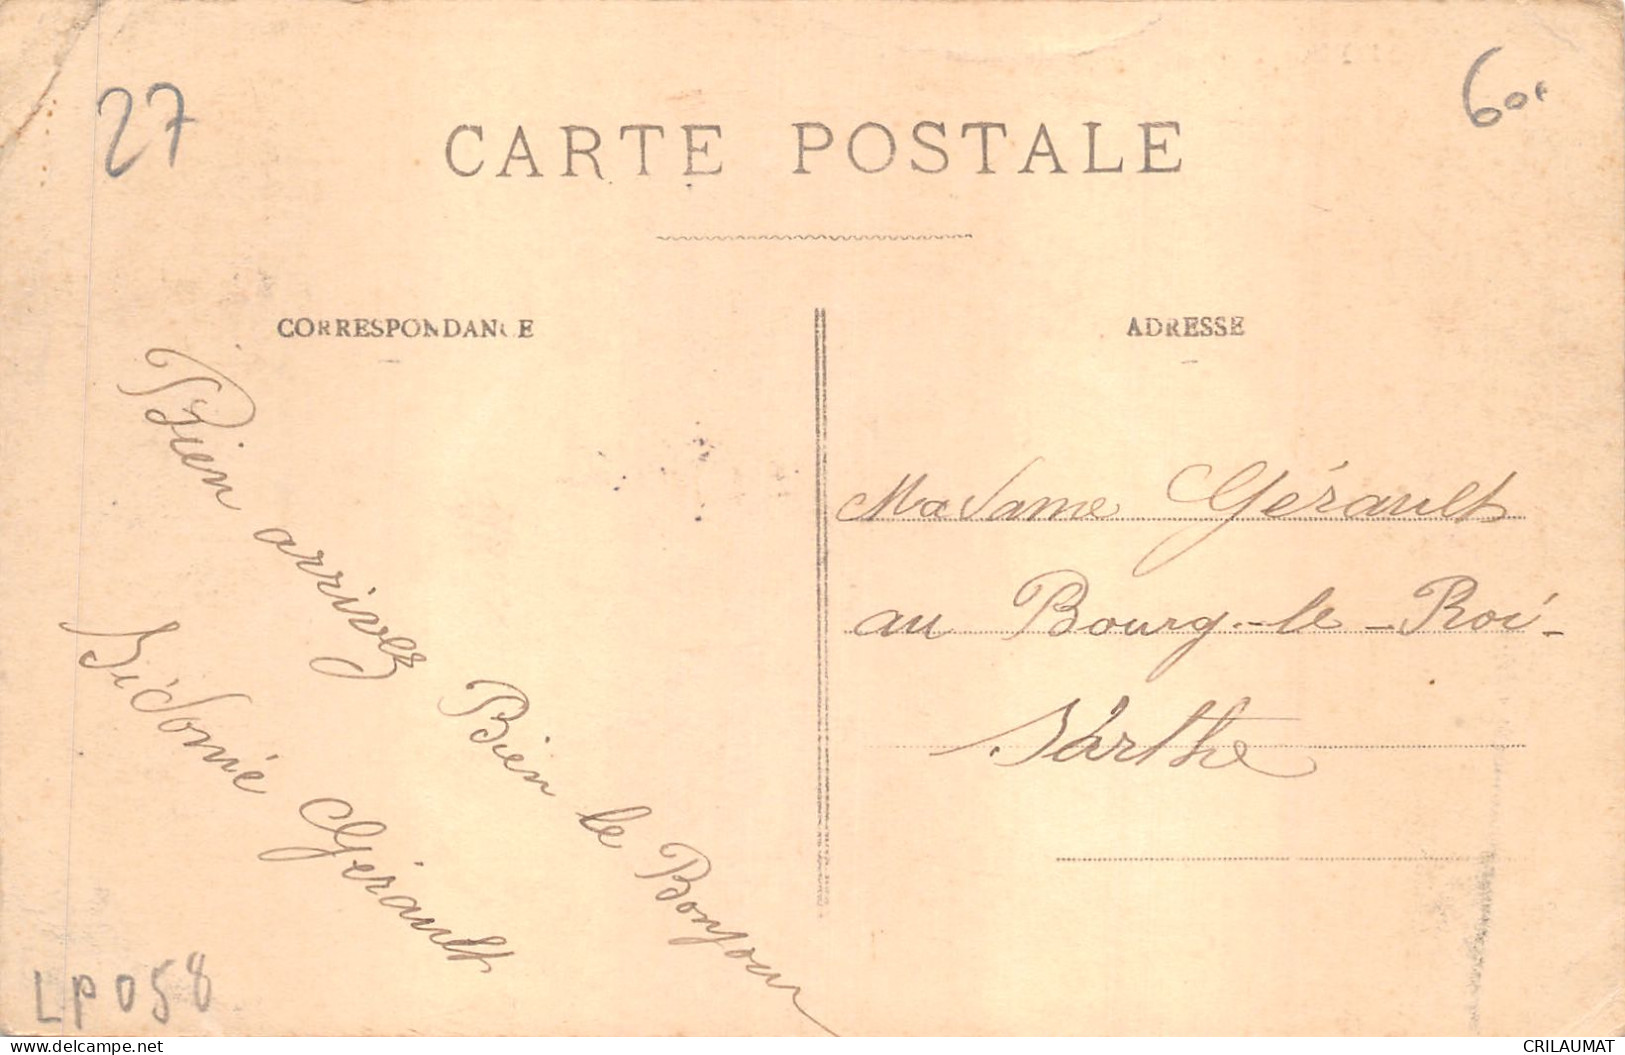 27
600
CARTE POSTALE
CORRESPONDANCE
ADRESSE
Bien arrivez Bien le Bonjour
Sidonié Gérault
Madame Gérault
au Bourg-le-Roi-
Sarthe
LP058
delcampe.net
CRILAUMAT